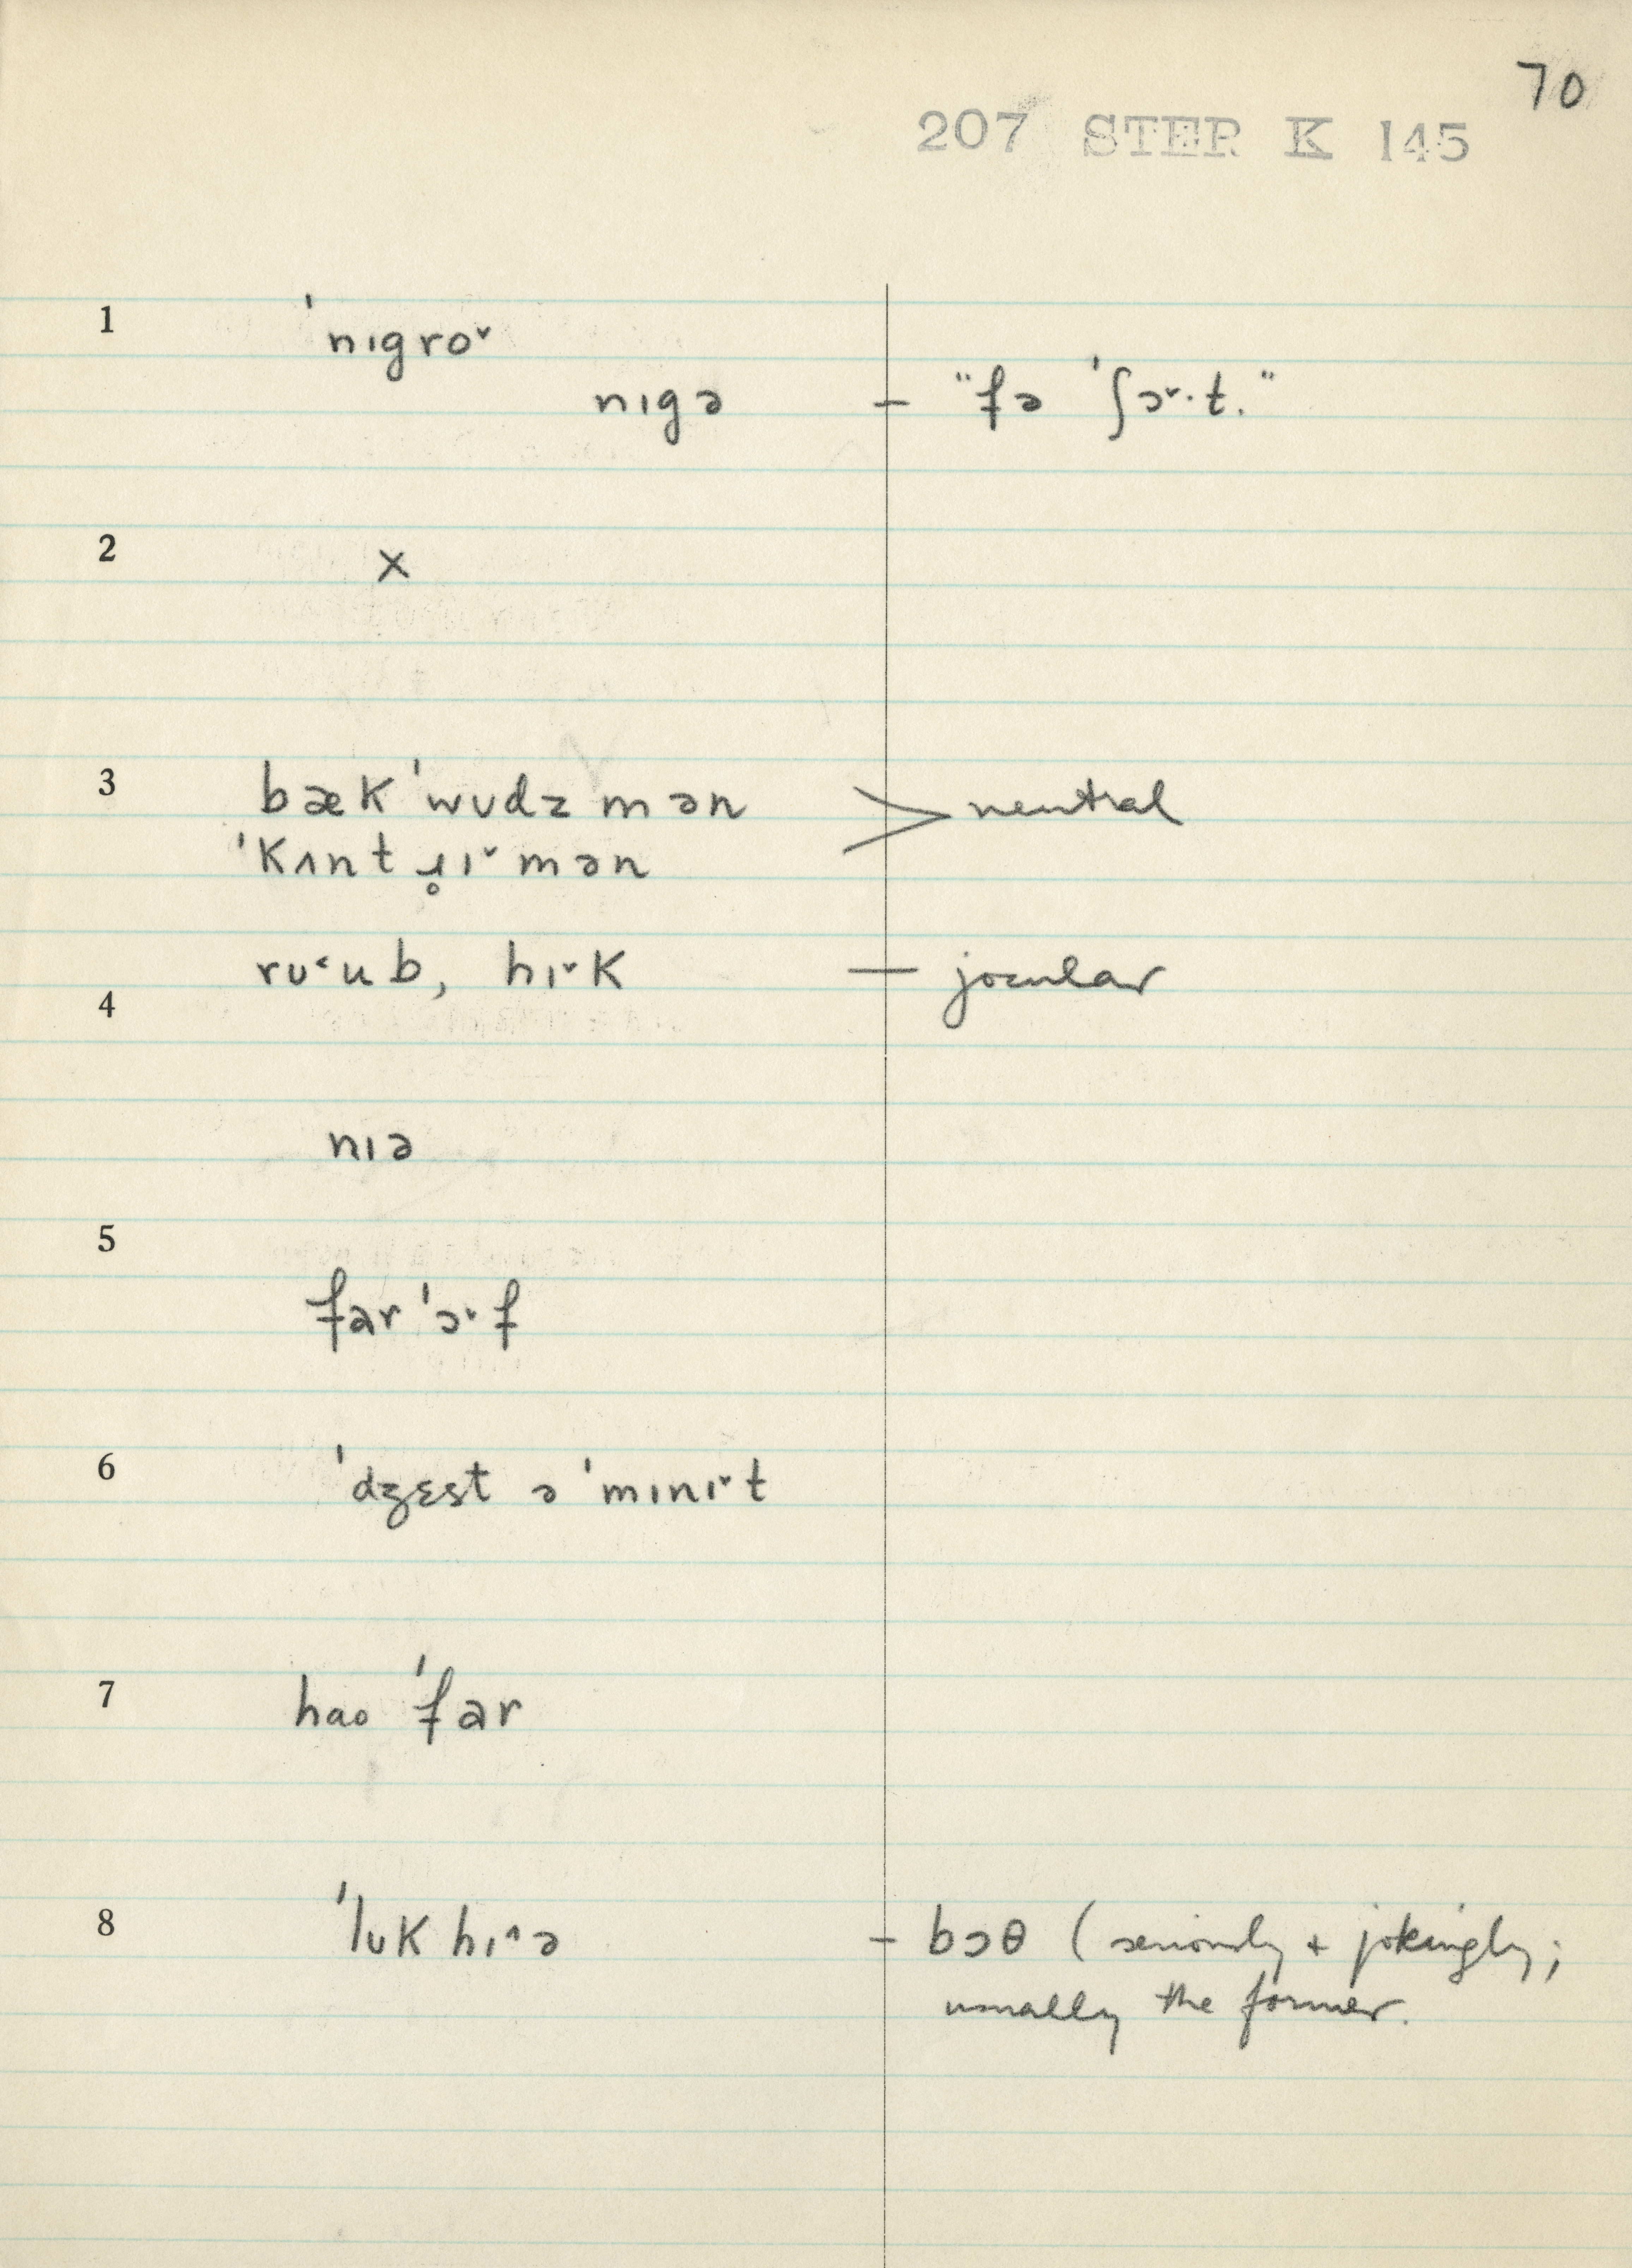 70
207 STER K 145
1 ˈnɪgroˇ
nɪgə – "fə ˈʃɔˇ·t."
2 ×
3 bæk ˈwʊdz mən > neutral
ˈkʌnt ɹ̥ɪˇmən
rʊ˂ub, hɪˇk – jocular
4
nɪə
5
far ˈɔˇf
6 ˈdʒɛst ə ˈmɪnɪˇt
7 hao ˈfar
8 ˈlʊk hɪ^ə – boθ (seriously + jokingly;
usually the former.